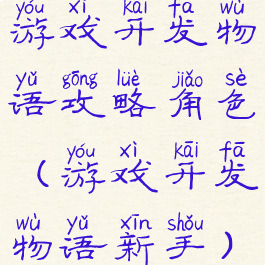 yóu xì kāi fā wù
游戏开发物
yǔ gōng lüè jiǎo sè
语攻略角色
yóu xì kāi fā
（游戏开发
wù yǔ xīn shǒu
物语新手）